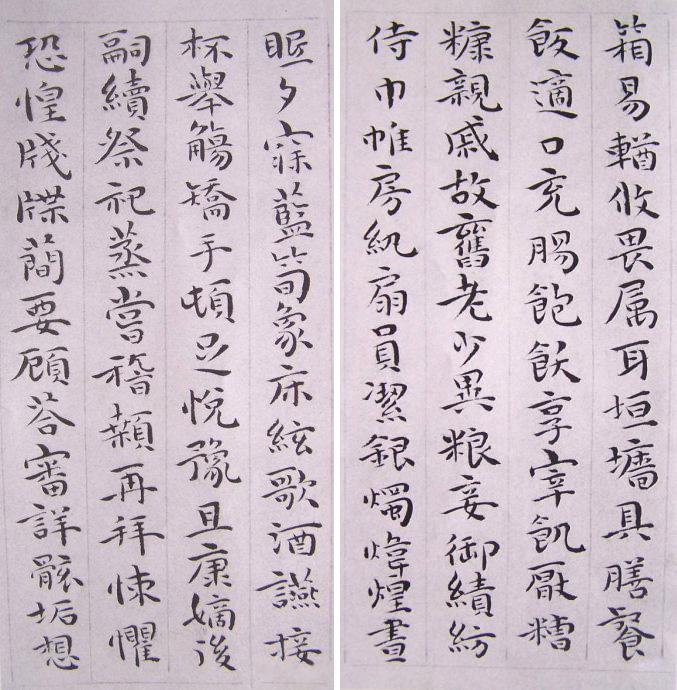 箱易輶攸畏属耳垣墻具膳餐
飯適口充腸飽飫享宰飢厭糟
糠親戚故舊老少異粮妾御績紡
侍巾帷房紈扇員潔銀燭煒煌晝
眠夕寐藍筍象床絃歌酒讌接
杯舉觴矯手頓足悅豫且康嫡後
嗣續祭祀蒸嘗稽顙再拜悚懼
恐惶牋牒簡要顧荅審詳骸垢想